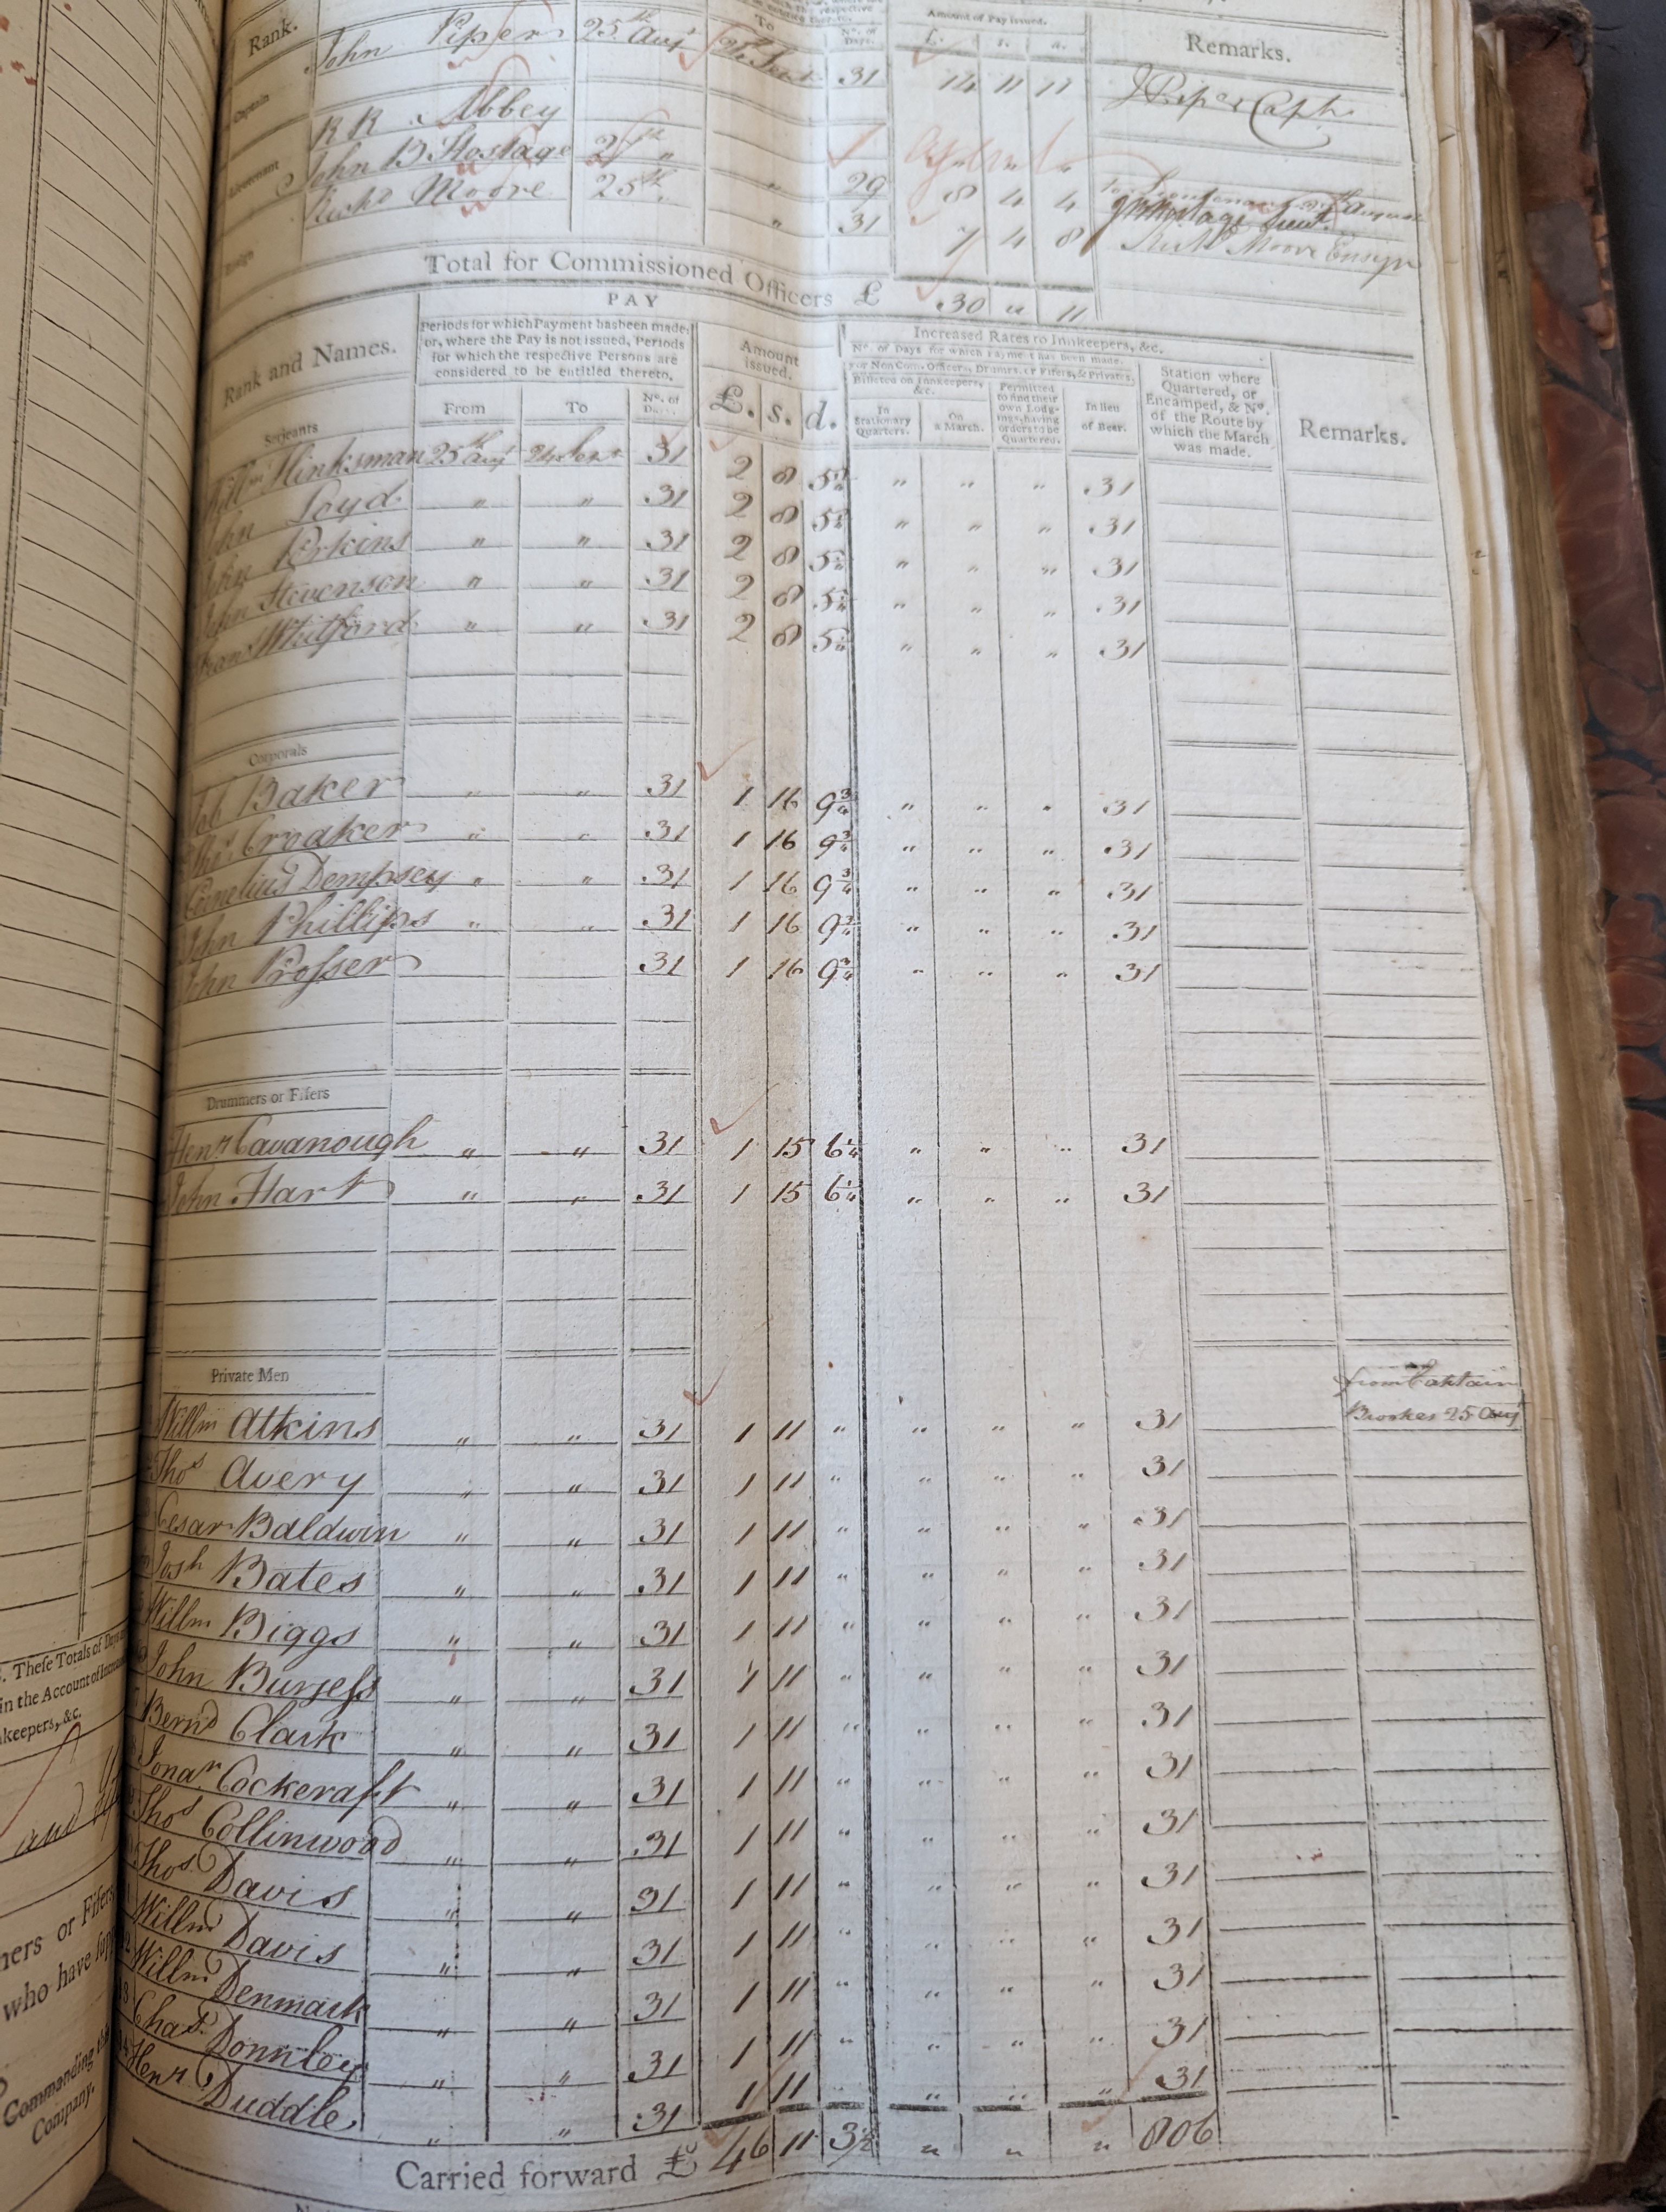 Rank.
To
No. of Days.
Amount of Pay issued.
£. s. d.
Remarks.
Captain
John Piper 25th Augt 24th Sept 31 14 11 11 J Piper Capt
Lieutenant
R R Abbey
John B Hostage 27th " " 29 8 4 4
Ensign
Richd Moore 25th " 31 7 4 8 Richd Moore Ensign
Total for Commissioned Officers £ 30 " 11
PAY
Rank and Names.
Periods for which Payment has been made;
or, where the Pay is not issued, Periods
for which the respective Persons are
considered to be entitled thereto.
From To No. of Days.
Amount issued.
£. s. d.
Increased Rates to Innkeepers, &c.
No. of Days for which Payment has been made.
For Non Com. Officers, Drumrs. or Fifers, & Privates,
Billeted on Innkeepers, &c.
In Stationary Quarters.
On a March.
Permitted to find their own Lodgings, having orders to be Quartered.
In lieu of Beer.
Station where Quartered, or Encamped, & No. of the Route by which the March was made.
Remarks.
Serjeants
Willm Hinksman 25th Augt 24 Sept 31 2 8 5¼ " " " 31
John Loyd " " 31 2 8 5¼ " " " 31
John Perkins " " 31 2 8 5¼ " " " 31
John Stevenson " " 31 2 8 5¼ " " " 31
Frans Whitford " " 31 2 8 5¼ " " " 31
Corporals
Job Baker " " 31 1 16 9¾ " " " 31
Thos Croaker " " 31 1 16 9¾ " " " 31
Cornelius Dempsey " " 31 1 16 9¾ " " " 31
John Phillips " " 31 1 16 9¾ " " " 31
John Prosser 31 1 16 9¾ " " " 31
Drummers or Fifers
Henry Cavanough " " 31 1 15 6¼ " " " 31
John Hart " " 31 1 15 6¼ " " " 31
Private Men
from Captain
Brookes 25 Aug
Willm Atkins " " 31 1 11 " " " " 31
Thos Avery " " 31 1 11 " " " " 31
Cesar Baldwin " " 31 1 11 " " " " 31
Josh Bates " " 31 1 11 " " " " 31
Willm Biggs " " 31 1 11 " " " " 31
John Burgess " " 31 1 11 " " " " 31
Bernd Clark " " 31 1 11 " " " " 31
Jonan Cockcraft " " 31 1 11 " " " " 31
Thos Collinwood " " 31 1 11 " " " " 31
Thos Davis " " 31 1 11 " " " " 31
Willm Davis " " 31 1 11 " " " " 31
Willm Denmark " " 31 1 11 " " " " 31
Chas Donnley " " 31 1 11 " " " " 31
Henr Duddle " " 31 1 11 " " " " 31
Carried forward £ 46 11 3½ " " " 806
These Totals of Days
in the Account of
keepers, &c.
and
or Fifers
who have
Commanding the
Company.